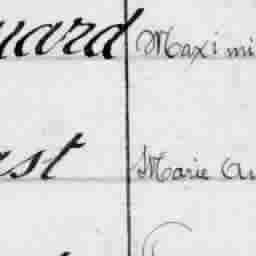 uard Maximi
ast Marie Au